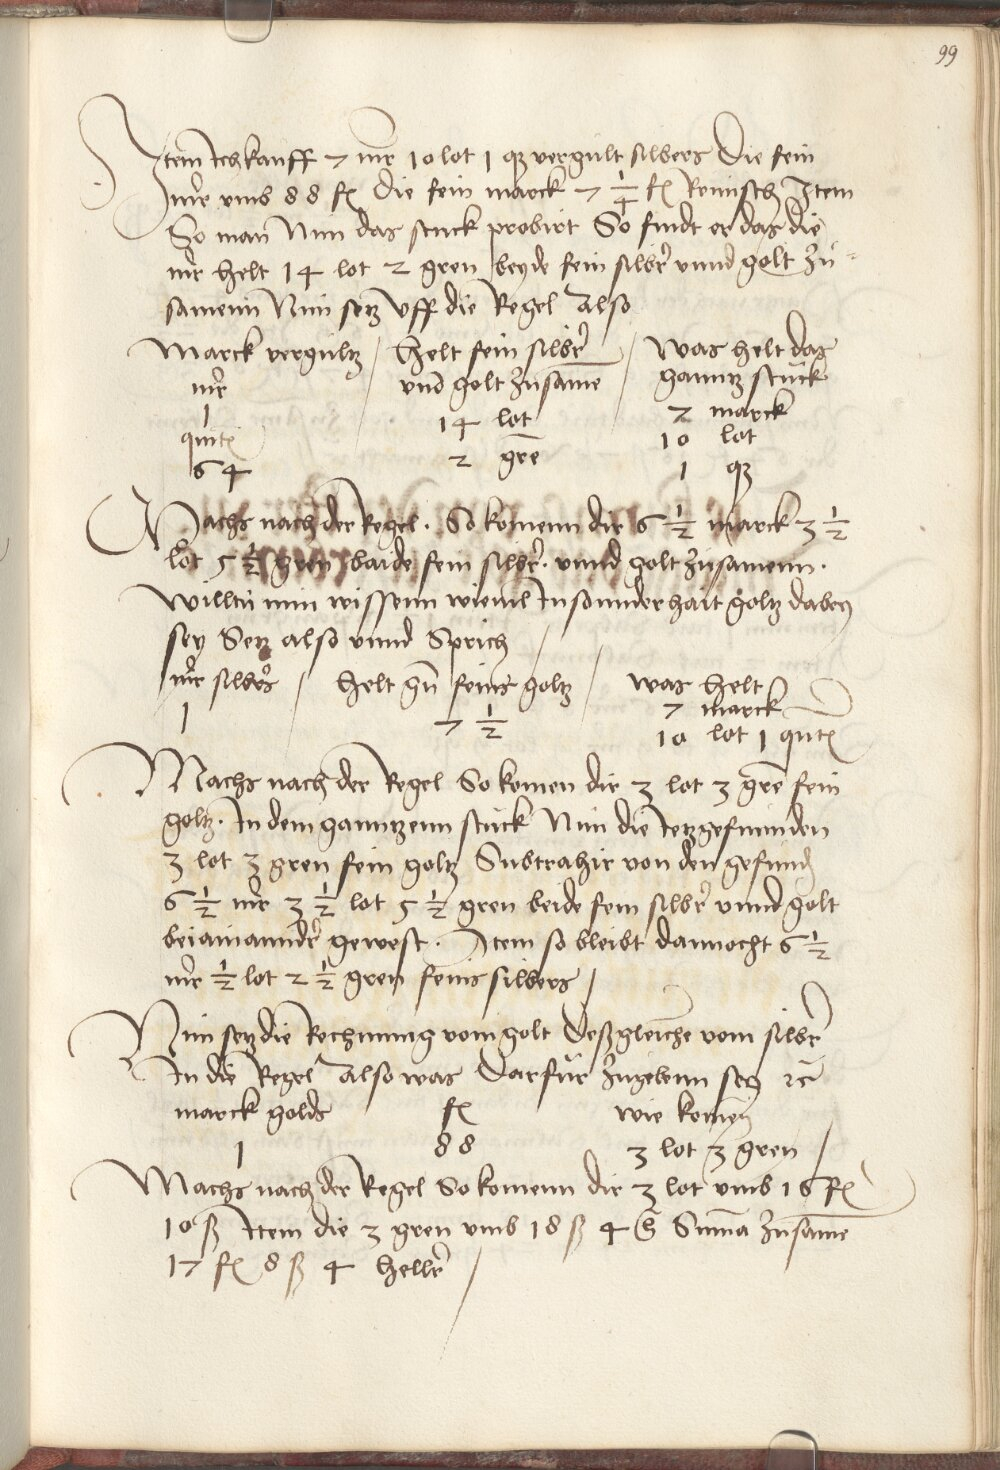 99
Item Ich kauff 7 mr 10 lot 1 qz vergült silbers Die fein
mr vmb 88 fl die fein marck 7 1/4 fl Reinisch Item
So man Nun das stuck probirt So findt er das die
mr helt 14 lot 2 gren beyde fein silbr vnnd golt zu
samenn Nun setz vff die Regel Also
Marck vergultz / helt fein silbr / was helt das
mr vnd golt zusame ganntz stuck
1 14 lot 7 marck
quit 2 gre 10 lot
64 1 qz
Machs nach der Regel . So komenn dir 6 1/2 marck 3 1/2
lot 5 1/2 gren baide fein silbr . vnnd golt zusamenn .
Willtu nun wissenn wieuil In sonnderhait goltz dabey
sey Setz also vnnd Sprich
mr silbrs / helt gn feins goltz / was helt
1 7 1/2 7 marck
10 lot 1 quit
Machs nach der Regel So komen dir 3 lot 3 gre fein
goltz . In dem ganntzenn stuck Nun die Ietzgefunnden
3 lot 3 gren fein goltz Subtrahir von den gefund
6 1/2 mr 3 1/2 lot 5 1/2 gren beide fein silbr vnnd golt
beiainannder gewest . Item so bleibt dannocht 6 1/2
mr 1/2 lot 2 1/2 gren feins silbers /
Nun setz die Rechnung vom golt Deßgleiche vom silbr
In die Regel Also was Darfür zugebenn sey rc
marck golds fl wie komen
1 88 3 lot 3 gren /
Machs nach der Regel So komenn dir 3 lot vmb 16 fl
10 ß Item die 3 gren vmb 18 ß 4 h Suma zusame
17 fl 8 ß 4 hellr /